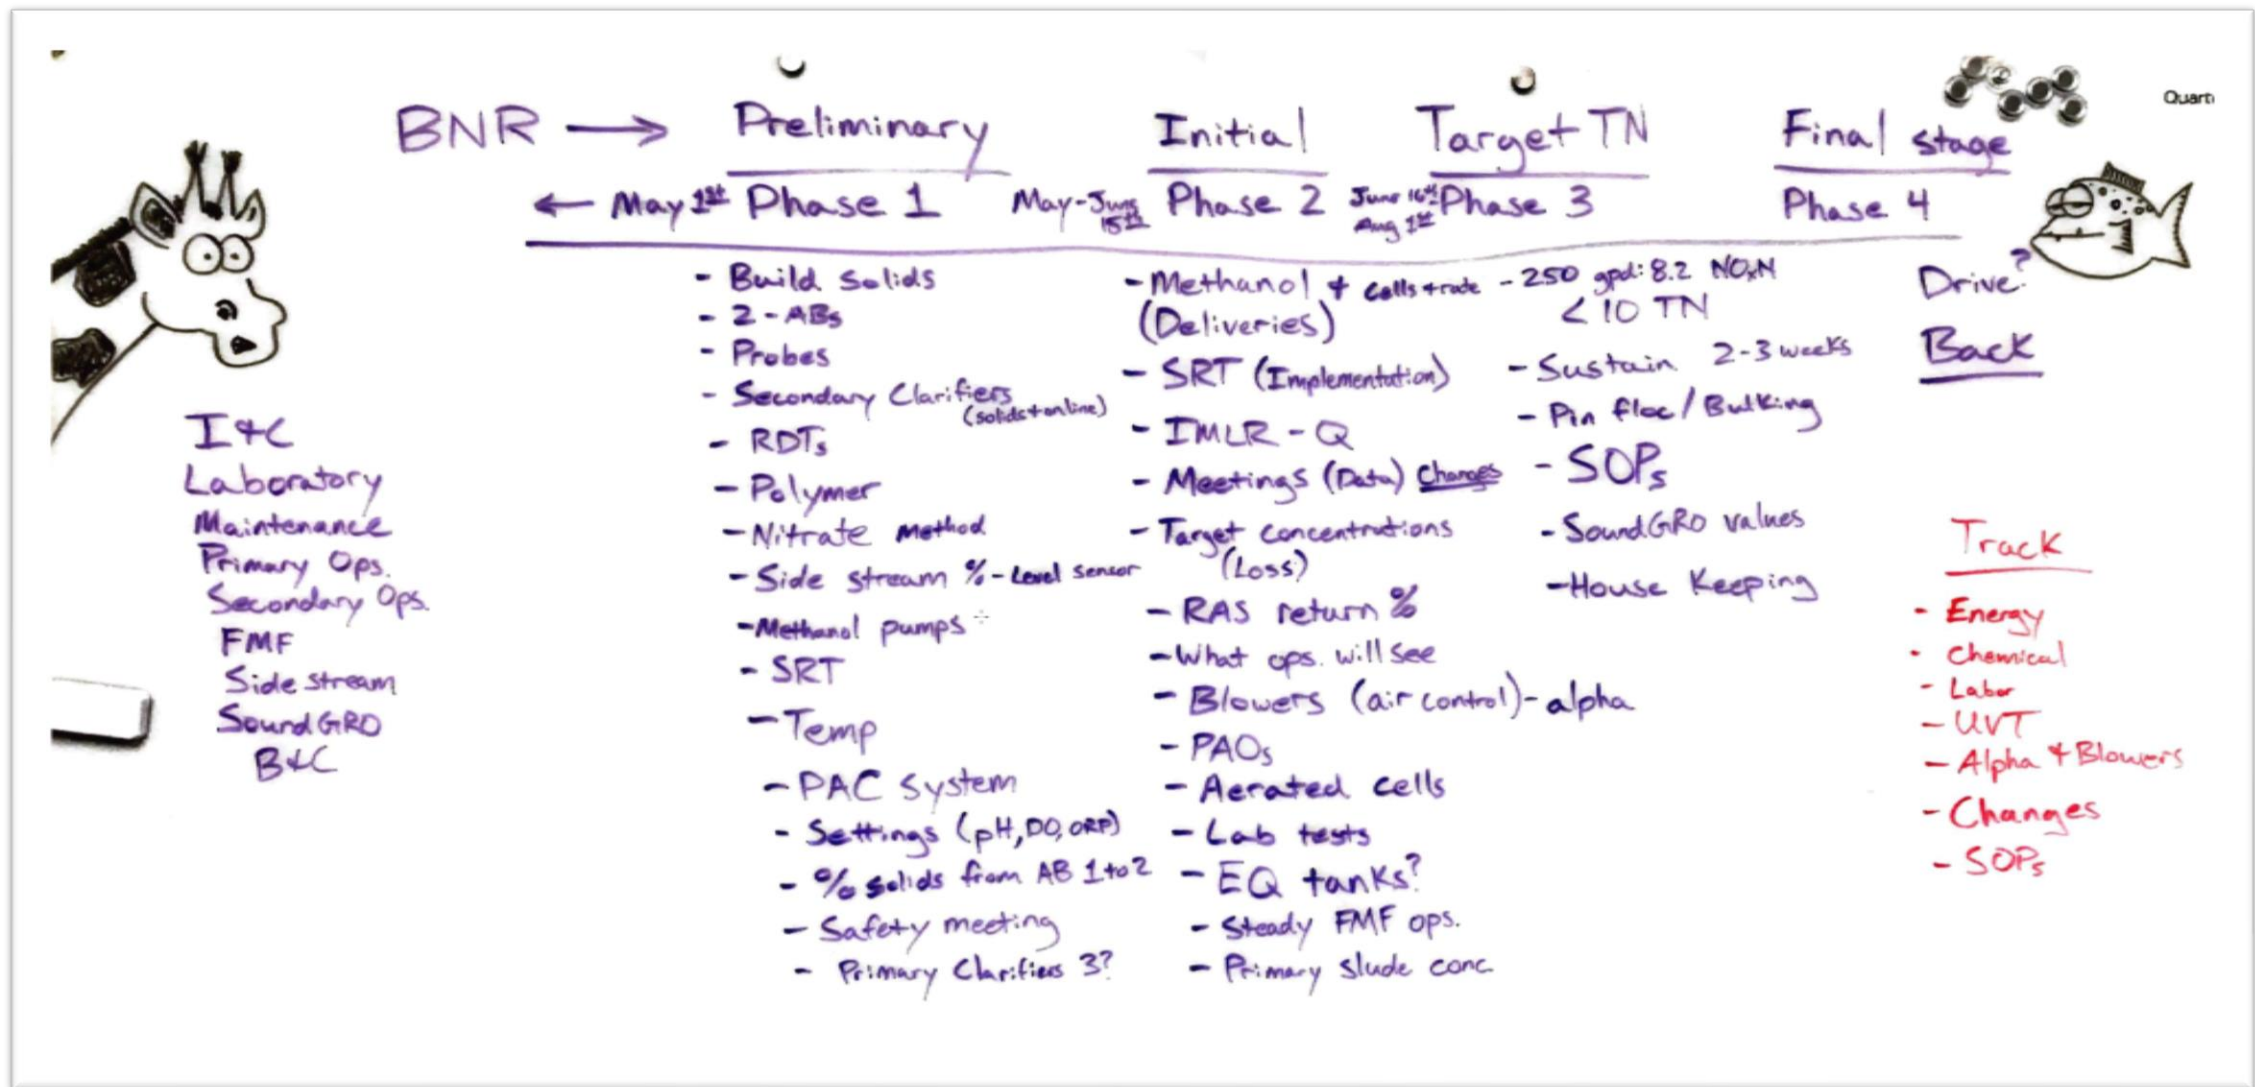 Quarti
BNR → Preliminary
Initial
Target TN
Final stage
← May 1st Phase 1
May-June 15th Phase 2
June 16th Aug 1st Phase 3
Phase 4
I&C
Laboratory
Maintenance
Primary Ops.
Secondary Ops.
FMF
Side stream
SoundGRO
B&C
- Build Solids
- 2-ABs
- Probes
- Secondary Clarifiers
(solids+online)
- RDTs
- Polymer
- Nitrate Method
- Side stream % - Level Sensor
- Methanol pumps
- SRT
- Temp
- PAC System
- Settings (pH, DO, ORP)
- % solids from AB 1 to 2
- Safety meeting
- Primary Clarifiers 3?
- Methanol + cells+rate
(Deliveries)
- SRT (Implementation)
- IMLR-Q
- Meetings (Data) Changes
- Target concentrations
(Loss)
- RAS return %
- What ops. will see
- Blowers (air control)- alpha
- PAOs
- Aerated cells
- Lab tests
- EQ tanks?
- Steady FMF ops.
- Primary Slude conc.
- 250 gpd: 8.2 NOxN
< 10 TN
- Sustain 2-3 weeks
- Pin floc/Bulking
- SOPs
- SoundGRO values
- House Keeping
Drive?
Back
Track
- Energy
- Chemical
- Labor
- UVT
- Alpha & Blowers
- Changes
- SOPs